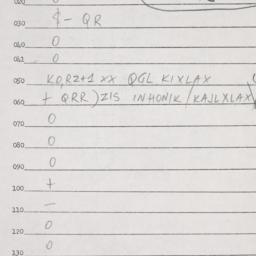 020 0
030 $ - QR
040 0
041 0
050 KO,RZ+1 XX QGL KIXLAX (
060 + QRR)ZIS INHONIK/KAJLXLAX\
070 0
080 0
090 0
100 +
110 -
120 0
130 0